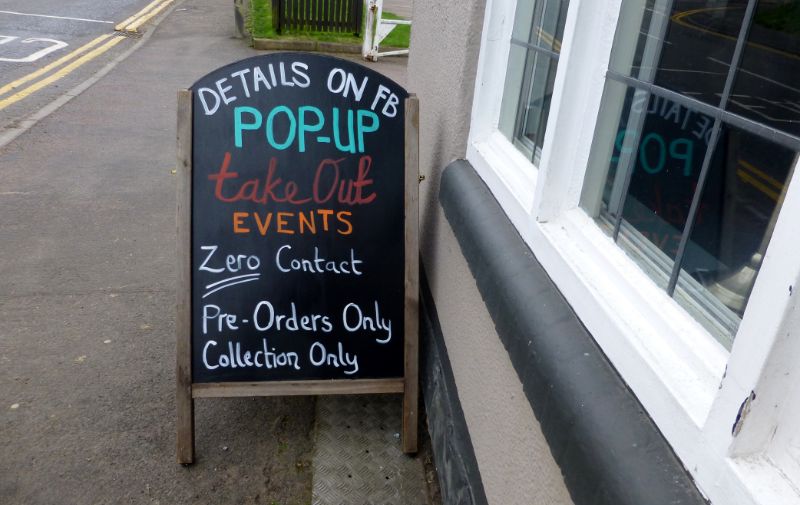 DETAILS ON FB
POP-UP
takeOut
EVENTS
Zero Contact
Pre-Orders Only
Collection Only